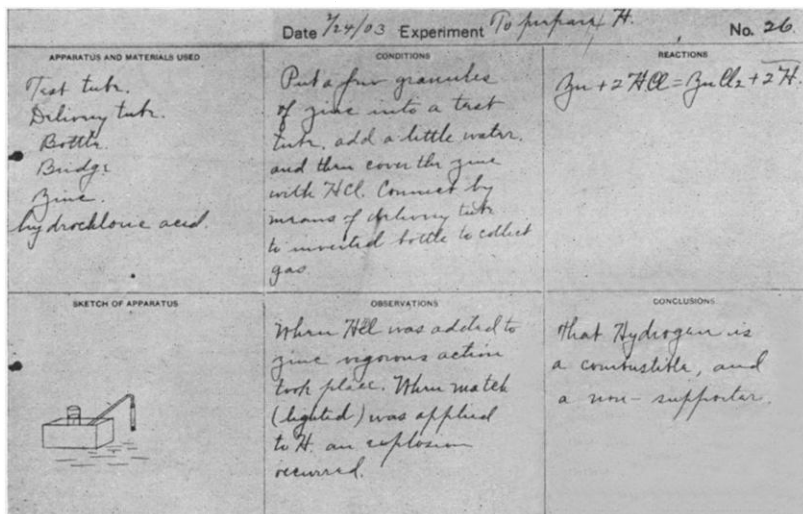 Date 2/24/03 Experiment To prepare H. No. 26
APPARATUS AND MATERIALS USED
Test tube.
Delivery tube.
Bottle.
Bridge
Zinc.
hydrochloric acid.
CONDITIONS
Put a few granules
of zinc into a test
tube, add a little water.
and then cover the zinc
with HCl. Connect by
means of delivery tube
to inverted bottle to collect
gas
REACTIONS
Zn + 2 HCl = ZnCl2 + 2 H.
SKETCH OF APPARATUS
OBSERVATIONS
When HCl was added to
zinc vigorous action
took place. When match
(lighted) was applied
to H. an explosion
occurred.
CONCLUSIONS
That Hydrogen is
a combustible, and
a non-supporter.